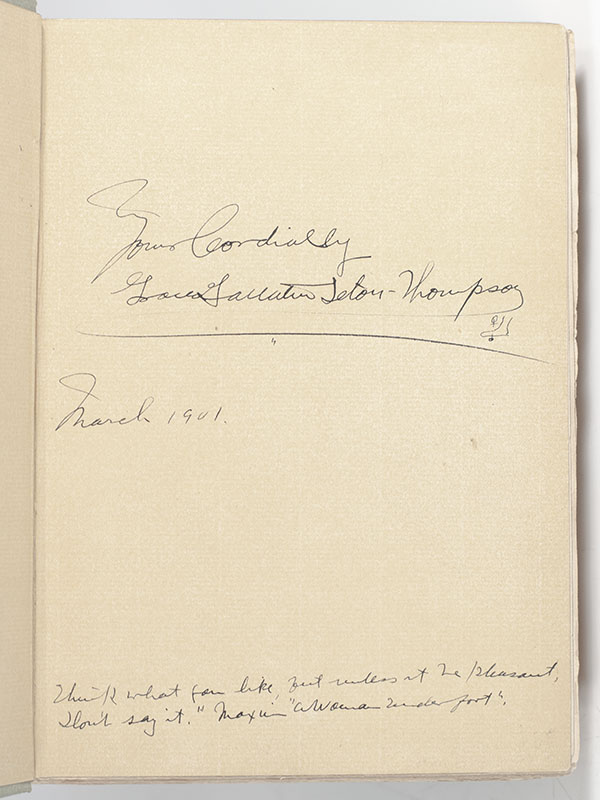 Yours Cordially
Grace Gallatin Seton-Thompson
March 1901.
Think what you like, but unless it be pleasant,
don't say it." Maxim "A Woman Underfoot".